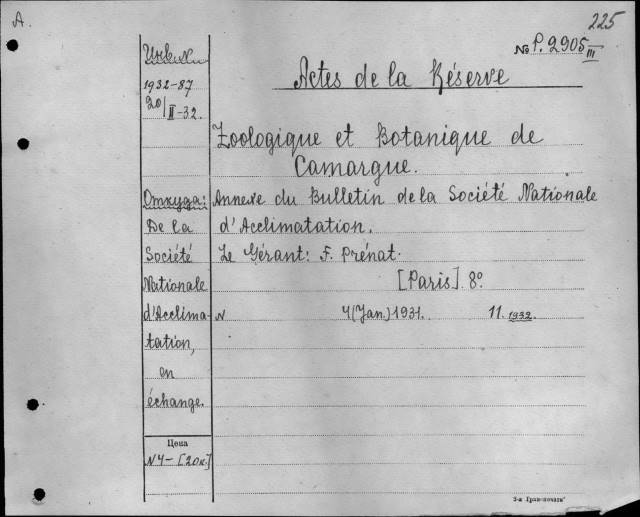 A.
225
№ P. 2905
III
Инв. №
1932-87
20/II-32.
Actes de la Réserve
Zoologique et Botanique de
Camargue.
Откуда:
De la
Société
Nationale
d'Acclima-
tation,
en
échange.
Annexe du Bulletin de la Société Nationale
d'Acclimatation.
Le Gérant: F. Prénat.
[Paris]. 8°.
N 4 (Jan.) 1931. 11. 1932.
Цена
N 4 - [20к.]